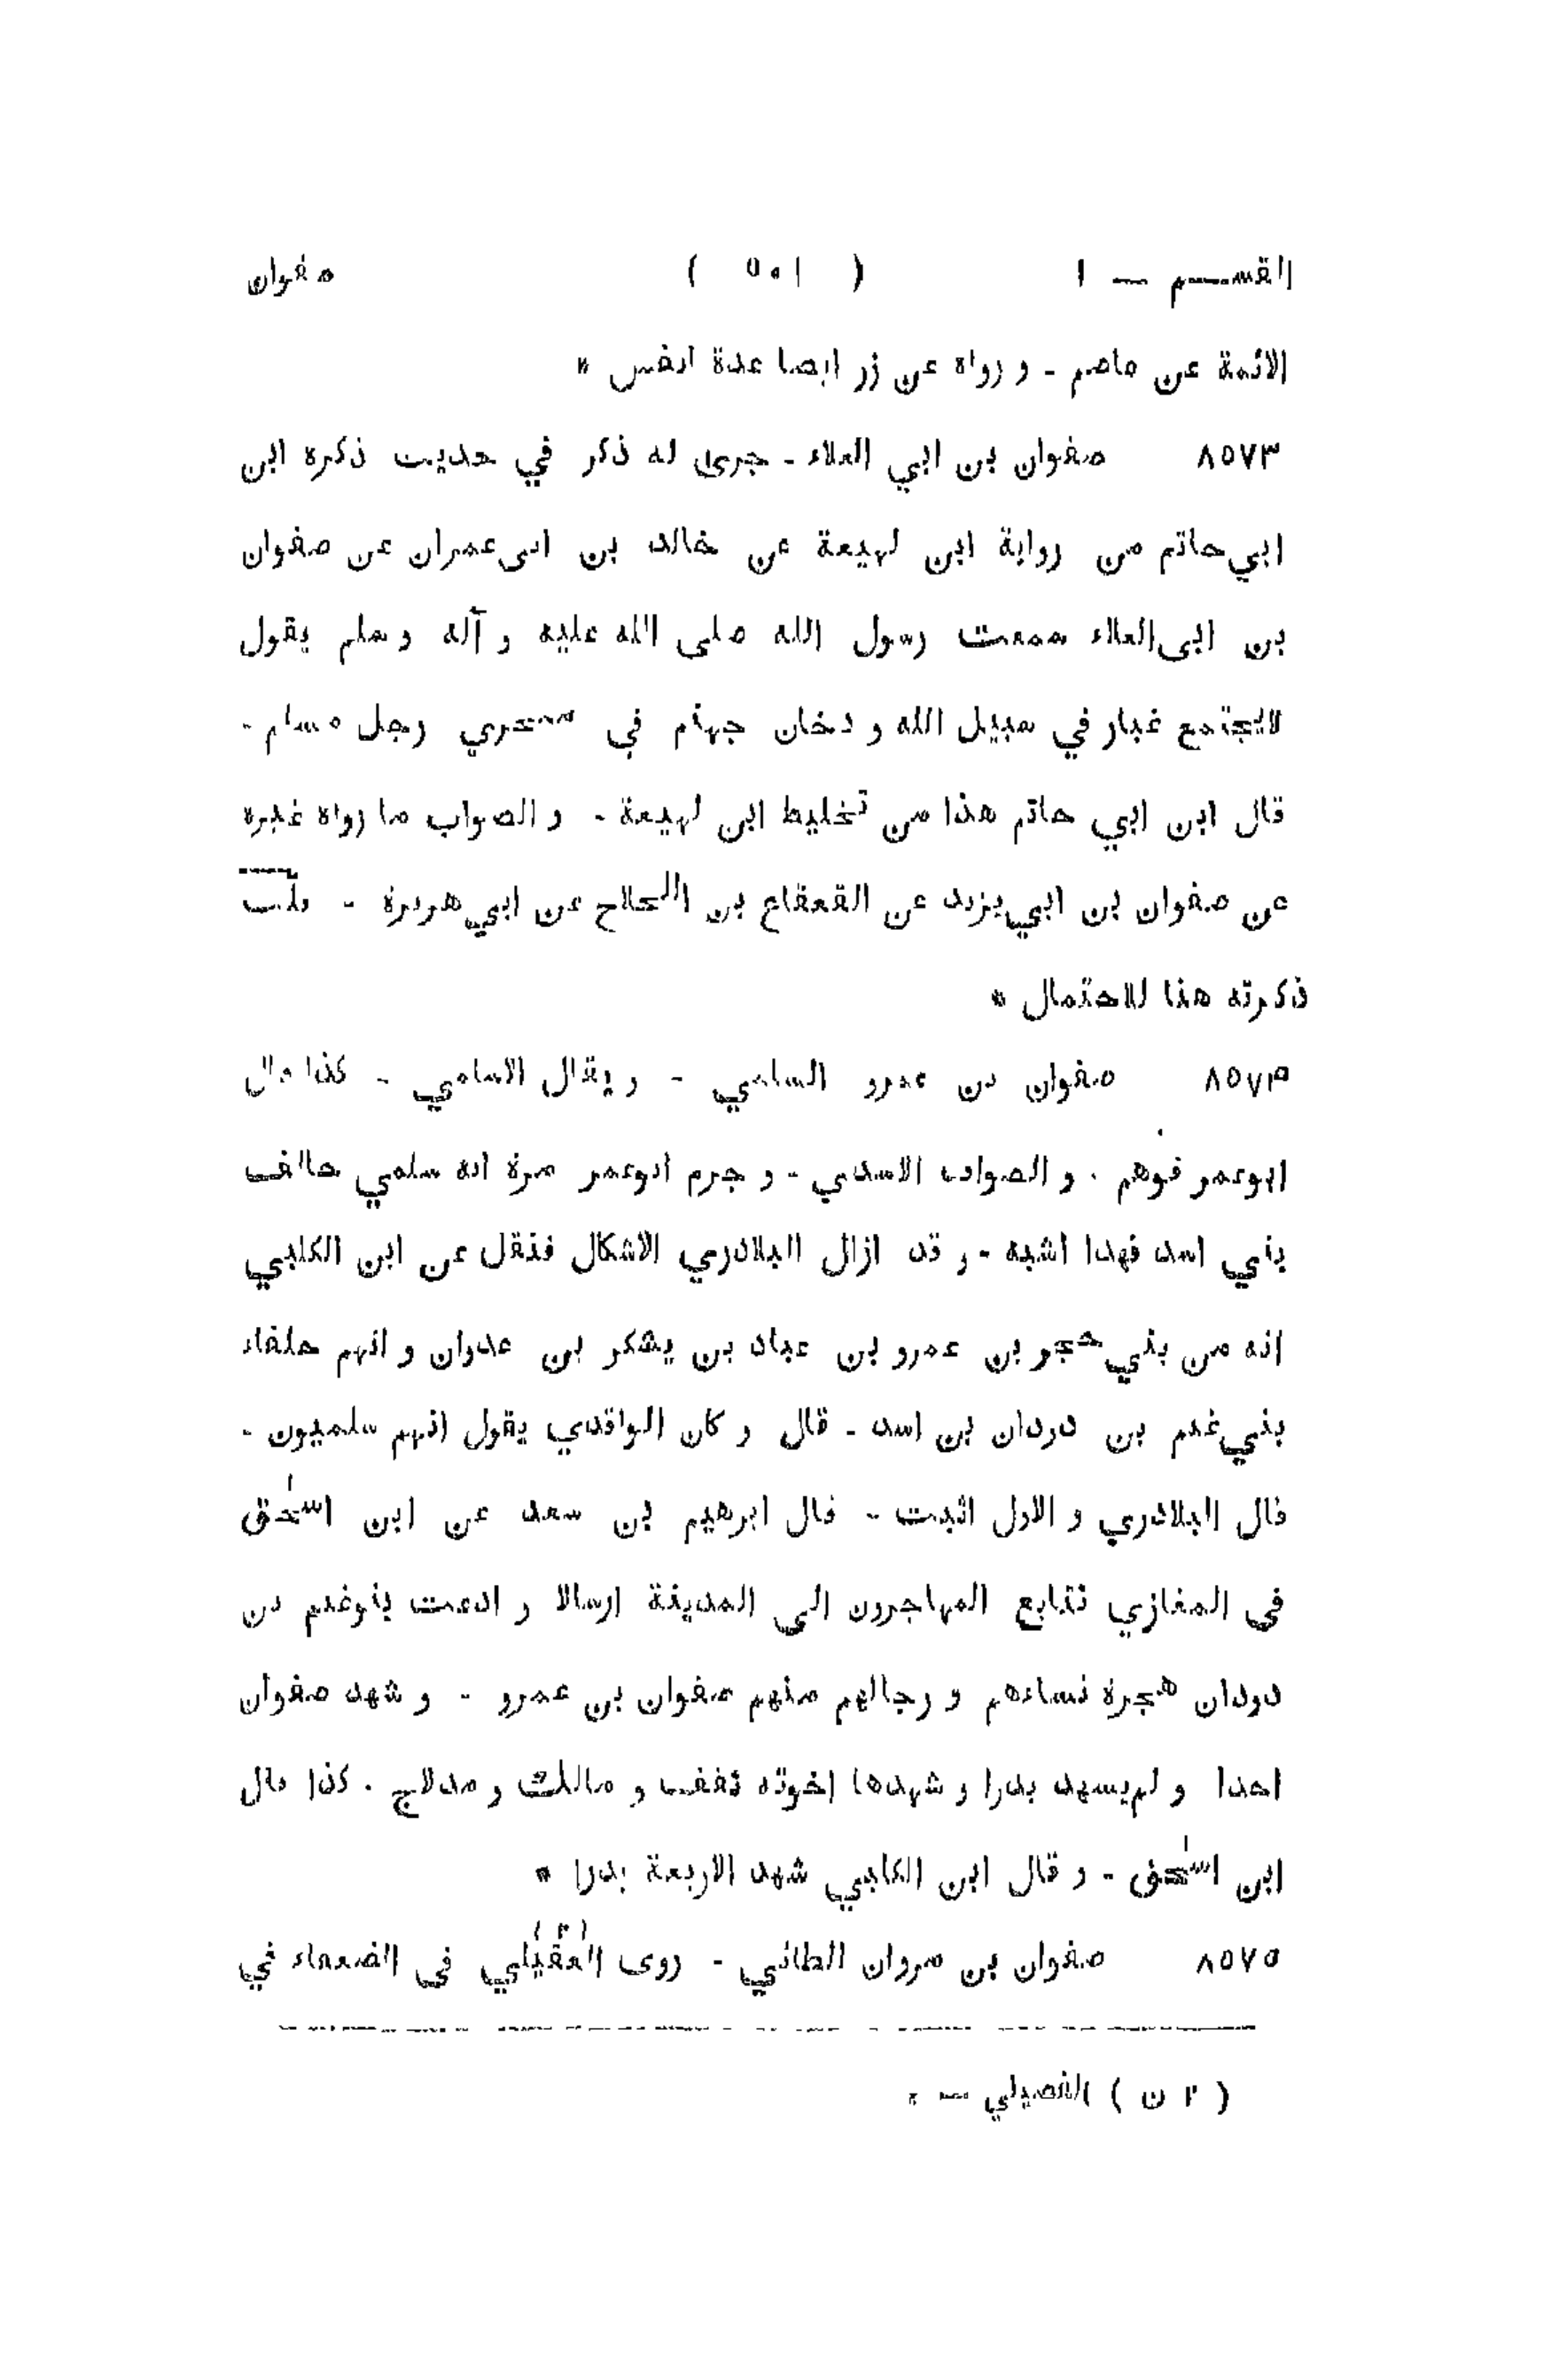 القسم — ١ ( ٥٠١ ) صفوان
الائمة عن عاصم - و رواه عن زر ايضا عدة انفس *
٨٥٧٣ صفوان بن ابي العلاء - جرى له ذكر في حديث ذكره ابن
ابي حاتم من رواية ابن لهيعة عن خالد بن ابى عمران عن صفوان
بن ابى العلاء سمعت رسول الله صلى الله عليه و آله و سلم يقول
لايجتمع غبار في سبيل الله و دخان جهنم في منخري رجل مسلم -
قال ابن ابي حاتم هذا من تخليط ابن لهيعة - و الصواب ما رواه غيره
عن صفوان بن ابي يزيد عن القعقاع بن اللجلاج عن ابي هريرة - قلت
ذكرته هنا للاحتمال *
٨٥٧٤ صفوان بن عمرو السلمي - و يقال الاسلمي - كذا قال
ابوعمر فوهم . و الصواب الاسدي - و جزم ابوعمر مرة انه سلمي حالف
بني اسد فهذا اشبه - و قد ازال البلاذري الاشكال فنقل عن ابن الكلبي
انه من بني حجر بن عمرو بن عباد بن يشكر بن عدوان و انهم حلفاء
بني غنم بن دودان بن اسد - قال و كان الواقدي يقول انهم سلميون -
قال البلاذري و الاول اثبت - قال ابرهيم بن سعد عن ابن اسحٰق
فى المغازي تتابع المهاجرون الى المدينة ارسالا و ادعت بنوغنم بن
دودان هجرة نساءهم و رجالهم منهم صفوان بن عمرو - و شهد صفوان
احدا و لم يشهد بدرا و شهدها اخوته ثقف و مالك و مدلاج . كذا قال
ابن اسحٰق - و قال ابن الكلبي شهد الاربعة بدرا *
٨٥٧٥ صفوان بن مروان الطائي - روى العُقَيْلي (٢) فى الضعفاء في
( ٢ ن ) الفصيلي — *